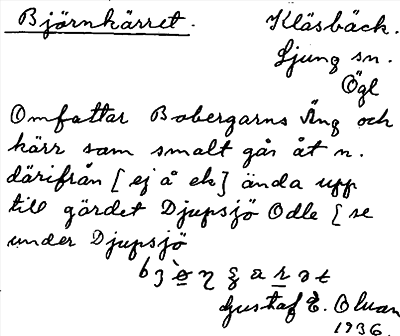 Björnkärret. Kläsbäck.
Ljung sn.
Ögl
Omfattar Bobergarns Äng och
kärr som smalt går åt n.
därifrån [ej å ek] ända upp
till gärdet Djupsjö Odle [se
under Djupsjö
Gustaf E.
1936.